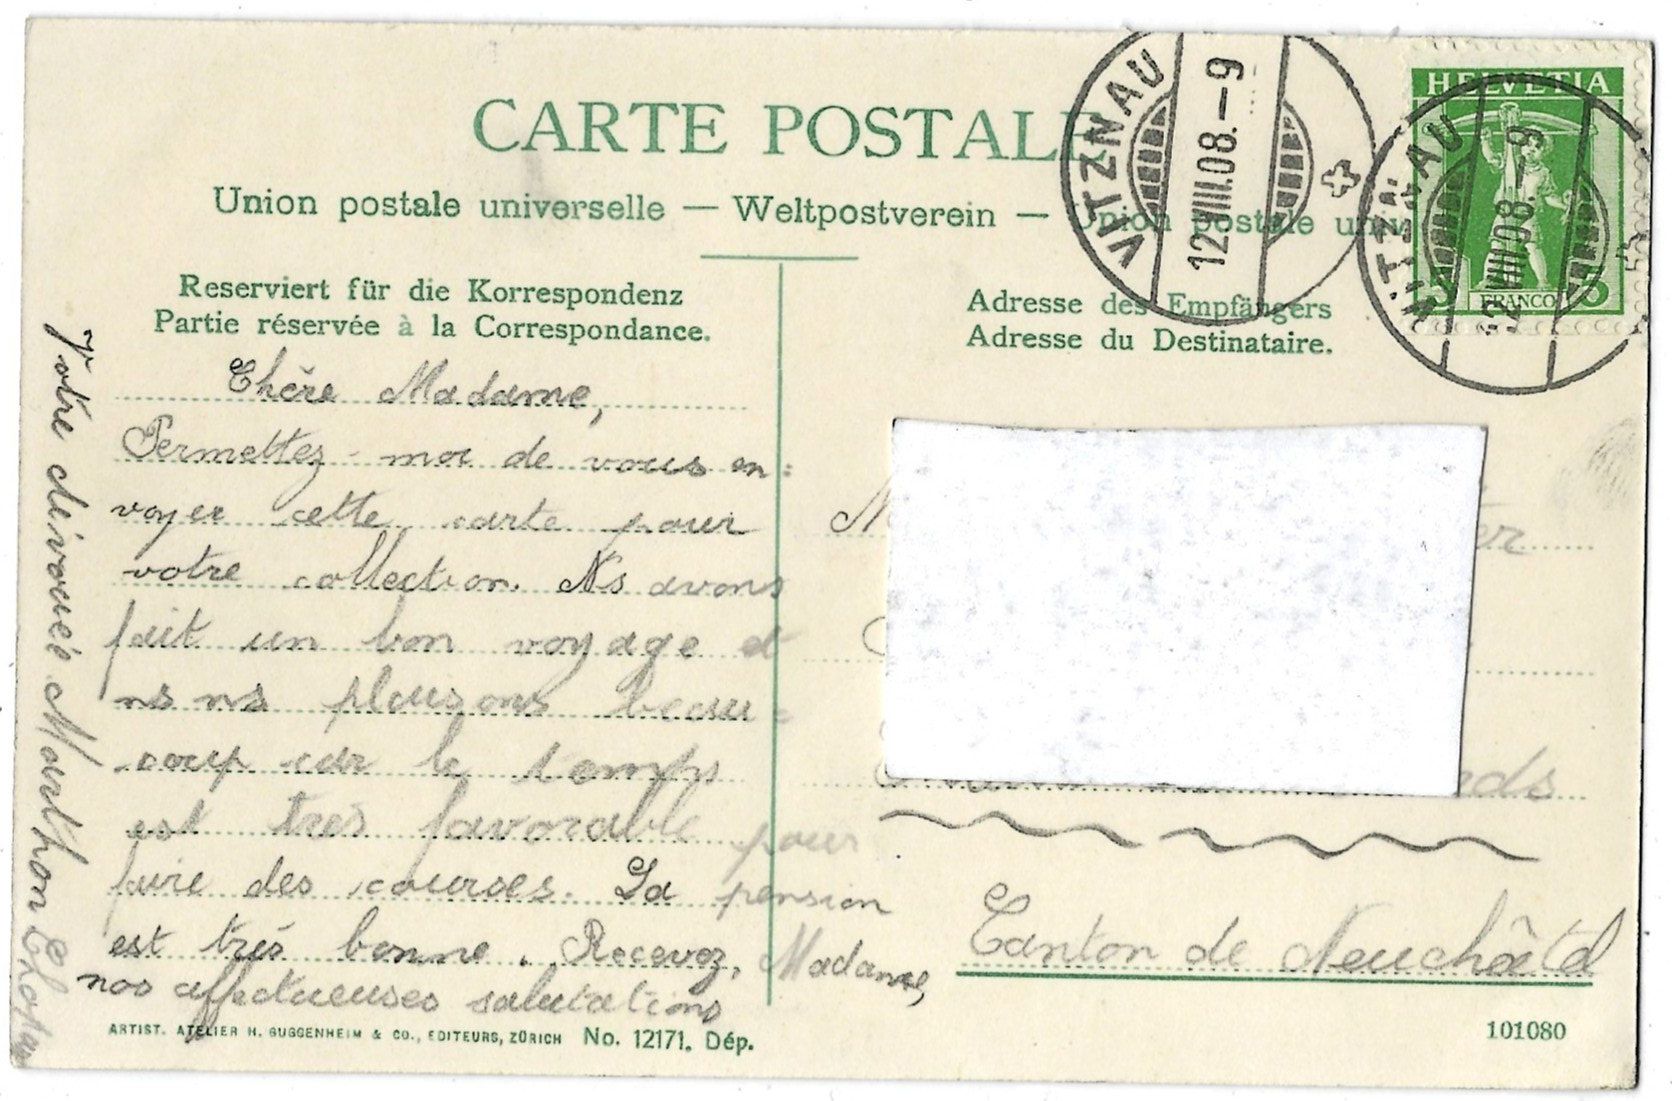 CARTE POSTALE
Union postale universelle — Weltpostverein — Union postale univ
Reserviert für die Korrespondenz
Partie réservée à la Correspondance.
Adresse des Empfängers
Adresse du Destinataire.
VITZNAU
12.VIII.08.–9
HELVETIA
FRANCO
5
VITZNAU
12.VIII.08.–9
Chère Madame,
Permettez-moi de vous en:
voyer cette carte pour
votre collection. Ns avons
fait un bon voyage et
ns ns plaisons beau:
coup car le temps
est très favorable pour
faire des courses. La pension
est très bonne. Recevez, Madame,
nos affectueuses salutations
Votre dévouée Marthon
er
ds
Canton de Neuchâtel
ARTIST. ATELIER H. GUGGENHEIM & CO., EDITEURS, ZÜRICH No. 12171. Dép.
101080